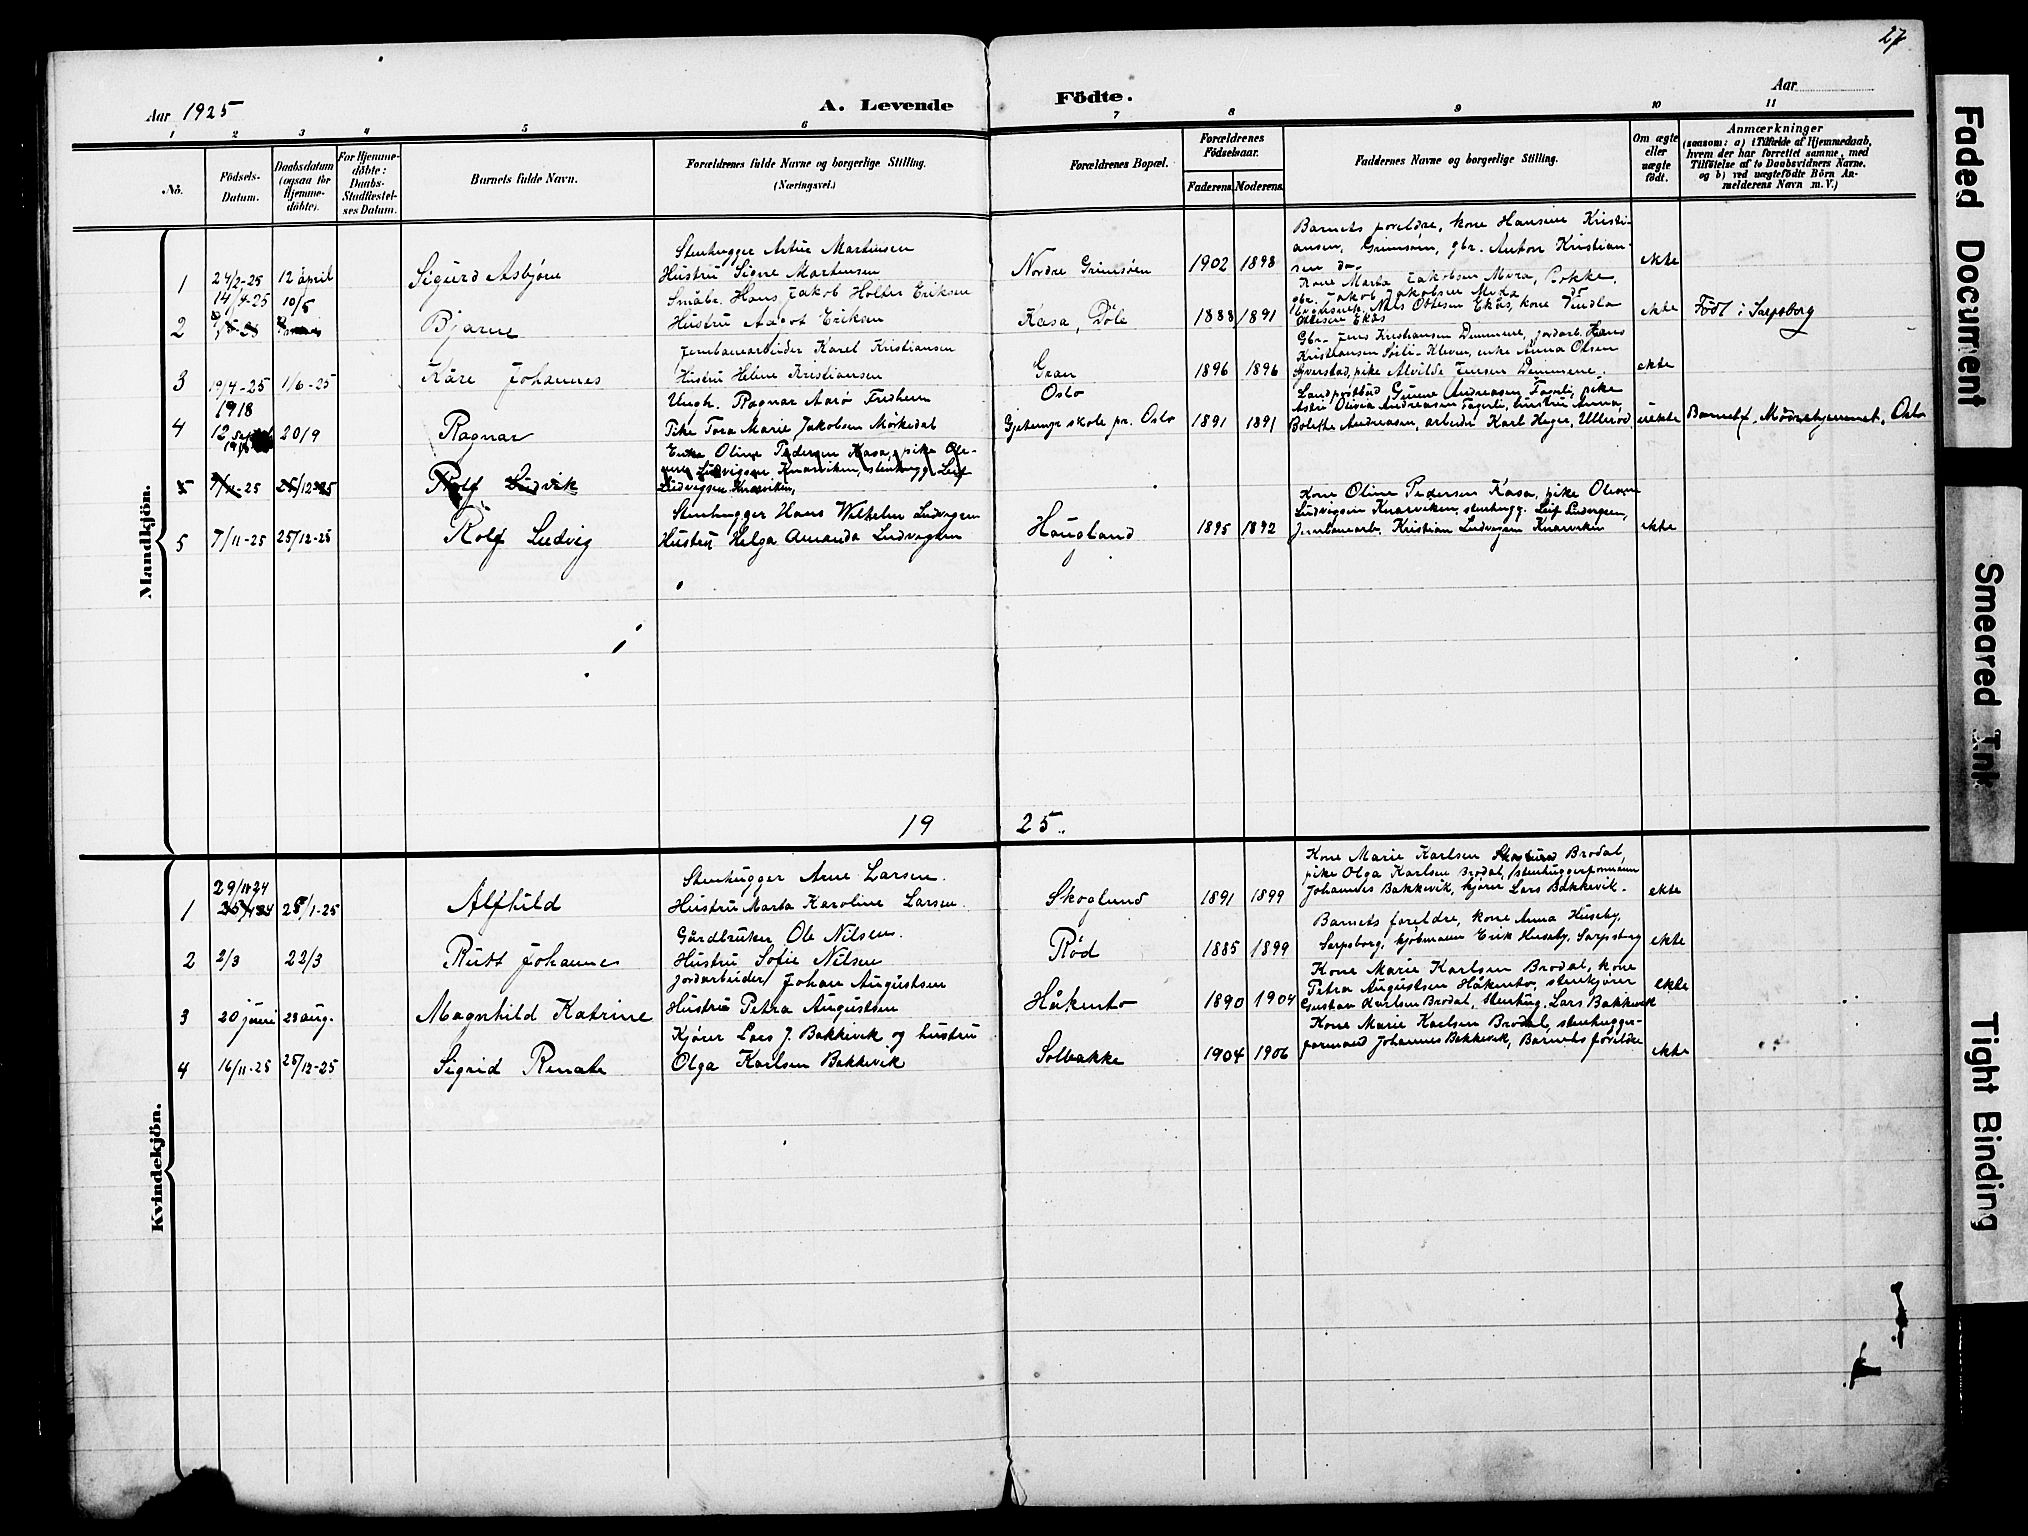 27
Aar 1925
A. Levende Födte.
Aar
1 2 3 4 5 6 7 8 9 10 11
No.
Födsels-
Datum.
Daabsdatum
(ogsaa for
Hjemme-
döbte).
For Hjemme-
döbte:
Daabs-
Stadfæstel-
ses Datum.
Barnets fulde Navn.
Forældrenes fulde Navne og borgerlige Stilling.
(Næringsvei.)
Forældrenes Bopæl.
Forældrenes
Födselsaar.
Faderens. Moderens.
Faddernes Navne og borgerlige Stilling.
Om ægte
eller
uægte
födt.
Anmærkninger
(saasom: a) i Tilfælde af Hjemmedaab,
hvem der har forrettet samme, med
Tilföielse af to Daabsvidners Navne,
og b) ved uægtefödte Börn An-
melderens Navn m. V.)
Mandkjön.
1 24/2-25 12 april Sigurd Asbjørn
Stenhugger Artur Martinsen
Hustru Signe Martensen
Nordre Grimsøen 1902 1898
Barnets foreldre, kone Hansine Kristi-
ansen, Grimsøen, gbr. Anton Kristian-
sen do
ekte
2 14/4-25 10/5 Bjarne
Småbr. Hans Jakob Holter Eriksen
Hustru Aagot Eriksen
Kasa, Döle 1888 1891
Kone Marta Jakobsen Mora, Bokke,
gbr. Jakob Jakobsen do
Nils Ottesen Ekås, kone
Ottesen Ekås
ekte Födt i Sarpsborg
3 19/4-25 1/6-25 Kåre Johannes
Jernbanearbeider Karel Kristiansen
Hustru Helene Kristiansen
Gran 1896 1896
Gbr. Jens Kristiansen Demmene, jordarb. Hans
Kristiansen Söili-Kleven, enke Anna Olsen
pike Alvilde Jensen Demmene.
ekte
4 1918 12 sept. 20/9 Ragnar
Ungk. Ragnar Aarø Fredheim
Pike Tora Marie Jakobsen Mörkedal
Oslo
Gjetemyr skole pr. Oslo 1891 1891
Landpostbud Andreasen pike
Astri Olivia Andreasen Fagerli, hustru Anna
Bolette Andreasen, arbeider Karl Heger, Ullerød
uekte Barnet f. Mödrehjemmet, Oslo
5 7/11-25 25/12-25 Rolf Ludvik
Enke Oline Pedersen Kasa, pike Ole-
Ludvigsen Knarviken, stenhugg. Leif
Ludvigsen Knarviken,
5 7/11-25 25/12-25 Rolf Ludvig
Stenhugger Hans Wilhelm Ludvigsen
Hustru Helga Amanda Ludvigsen
Haugland 1895 1892
Kone Oline Pedersen Kasa, pike
Ludvigsen Knarviken, stenhugg. Leif Ludvigsen,
Jernbanearb. Kristian Ludvigsen Knarviken
ekte
19 25.
Kvindekjön.
1 29/11-24 25/1-25 Alfhild
Stenhugger Arne Larsen.
Hustru Marta Karoline Larsen.
Skoglund 1891 1899
Kone Marie Karlsen Brodal,
pike Olga Karlsen Brodal, stenhuggerformann
Johannes Bakkevik, kjører Lars Bakkevik.
ekte
2 2/3 22/3 Rutt Johanne
Gårdbruker Ole Nilsen.
Hustru Sofie Nilsen
Rød 1885 1899
Barnets foreldre, kone Anna Huseby,
Sarpsborg, kjöbmann Erik Huseby, Sarpsborg
ekte
3 20 juni 23 aug. Magnhild Katrine
Jordarbeider Johan Augustsen
Hustru Petra Augustsen
Håkento 1890 1904
Kone Marie Karlsen Brodal, kone
Petra Augustsen Håkento, stenkjører
Gustav Karlsen Brodal, Stenhug. Lars Bakkevik
ekte
4 16/11-25 25/12-25 Sigrid Renate
Kjører Lars J. Bakkevik og hustru
Olga Karlsen Bakkevik
Solbakke 1904 1906
Kone Marie Karlsen Brodal, stenhugger-
formand Johannes Bakkevik, Barnets foreldre
ekte
Faded Document
Smeared Ink
Tight Binding